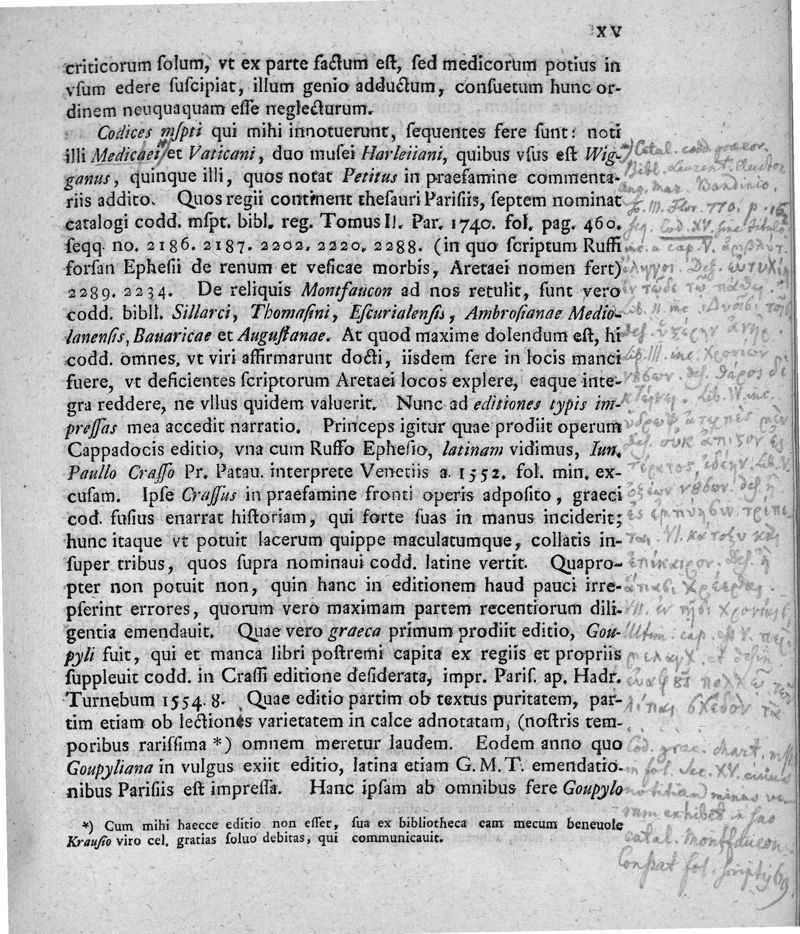 XV
criticorum ſolum, vt ex parte factum eſt, ſed medicorum potius in
vſum edere ſuſcipiat, illum genio adductum, conſuetum hunc or-
dinem neuquaquam eſſe neglecturum.
Codices mſpti qui mihi innotuerunt, ſequentes fere ſunt: noti
illi Medicaei et Vaticani, duo muſei Harleiiani, quibus vſus eſt Wig-
ganus, quinque illi, quos notat Petitus in praefamine commenta-
riis addito. Quos regii continent theſauri Pariſiis, ſeptem nominat
catalogi codd. mſpt. bibl. reg. Tomus II. Par. 1740. fol. pag. 460.
ſeqq. no. 2186. 2187. 2202. 2220. 2288. (in quo ſcriptum Ruffi
forſan Epheſii de renum et veſicae morbis, Aretaei nomen fert)
2289. 2234. De reliquis Montfaucon ad nos retulit, ſunt vero
codd. bibll. Sillarci, Thomaſini, Eſcurialenſis, Ambroſianae Medio-
lanenſis, Bauaricae et Auguſtanae. At quod maxime dolendum eſt, hi
codd. omnes, vt viri affirmarunt docti, iisdem fere in locis manci
fuere, vt deficientes ſcriptorum Aretaei locos explere, eaque inte-
gra reddere, ne vllus quidem valuerit. Nunc ad editiones typis im-
preſſas mea accedit narratio. Princeps igitur quae prodiit operum
Cappadocis editio, vna cum Ruffo Epheſio, latinam vidimus, Iun.
Paullo Craſſo Pr. Patau. interprete Venetiis a. 1552. fol. min. ex-
cuſam. Ipſe Craſſus in praefamine fronti operis adpoſito, graeci
cod. fuſius enarrat hiſtoriam, qui forte ſuas in manus inciderit;
hunc itaque vt potuit lacerum quippe maculatumque, collatis in-
ſuper tribus, quos ſupra nominaui codd. latine vertit. Quapro-
pter non potuit non, quin hanc in editionem haud pauci irre-
pſerint errores, quorum vero maximam partem recentiorum dili-
gentia emendauit. Quae vero graeca primum prodiit editio, Gou-
pyli fuit, qui et manca libri poſtremi capita ex regiis et propriis
ſuppleuit codd. in Craſſi editione deſiderata, impr. Pariſ. ap. Hadr.
Turnebum 1554. 8. Quae editio partim ob textus puritatem, par-
tim etiam ob lectiones varietatem in calce adnotatam, (noſtris tem-
poribus rariſſima *) omnem meretur laudem. Eodem anno quo
Goupyliana in vulgus exiit editio, latina etiam G. M. T. emendatio-
nibus Pariſiis eſt impreſſa. Hanc ipſam ab omnibus fere Goupylo
*) Cum mihi haecce editio non eſſet, ſua ex bibliotheca eam mecum beneuole
Krauſio viro cel. gratias ſoluo debitas, qui communicauit.
*) Catal. codd. graecor.
Bibl. Laurent.
Ang. Mar. Bandinio.
Cod. XV. ſine titulo
Lib. V.
Cod. graec. chart.
fol. Sec. XV. cuius
notitiam minus ve-
ram exhibet in ſuo
catal. Montfaucon.
Conſtat fol. ſcriptis